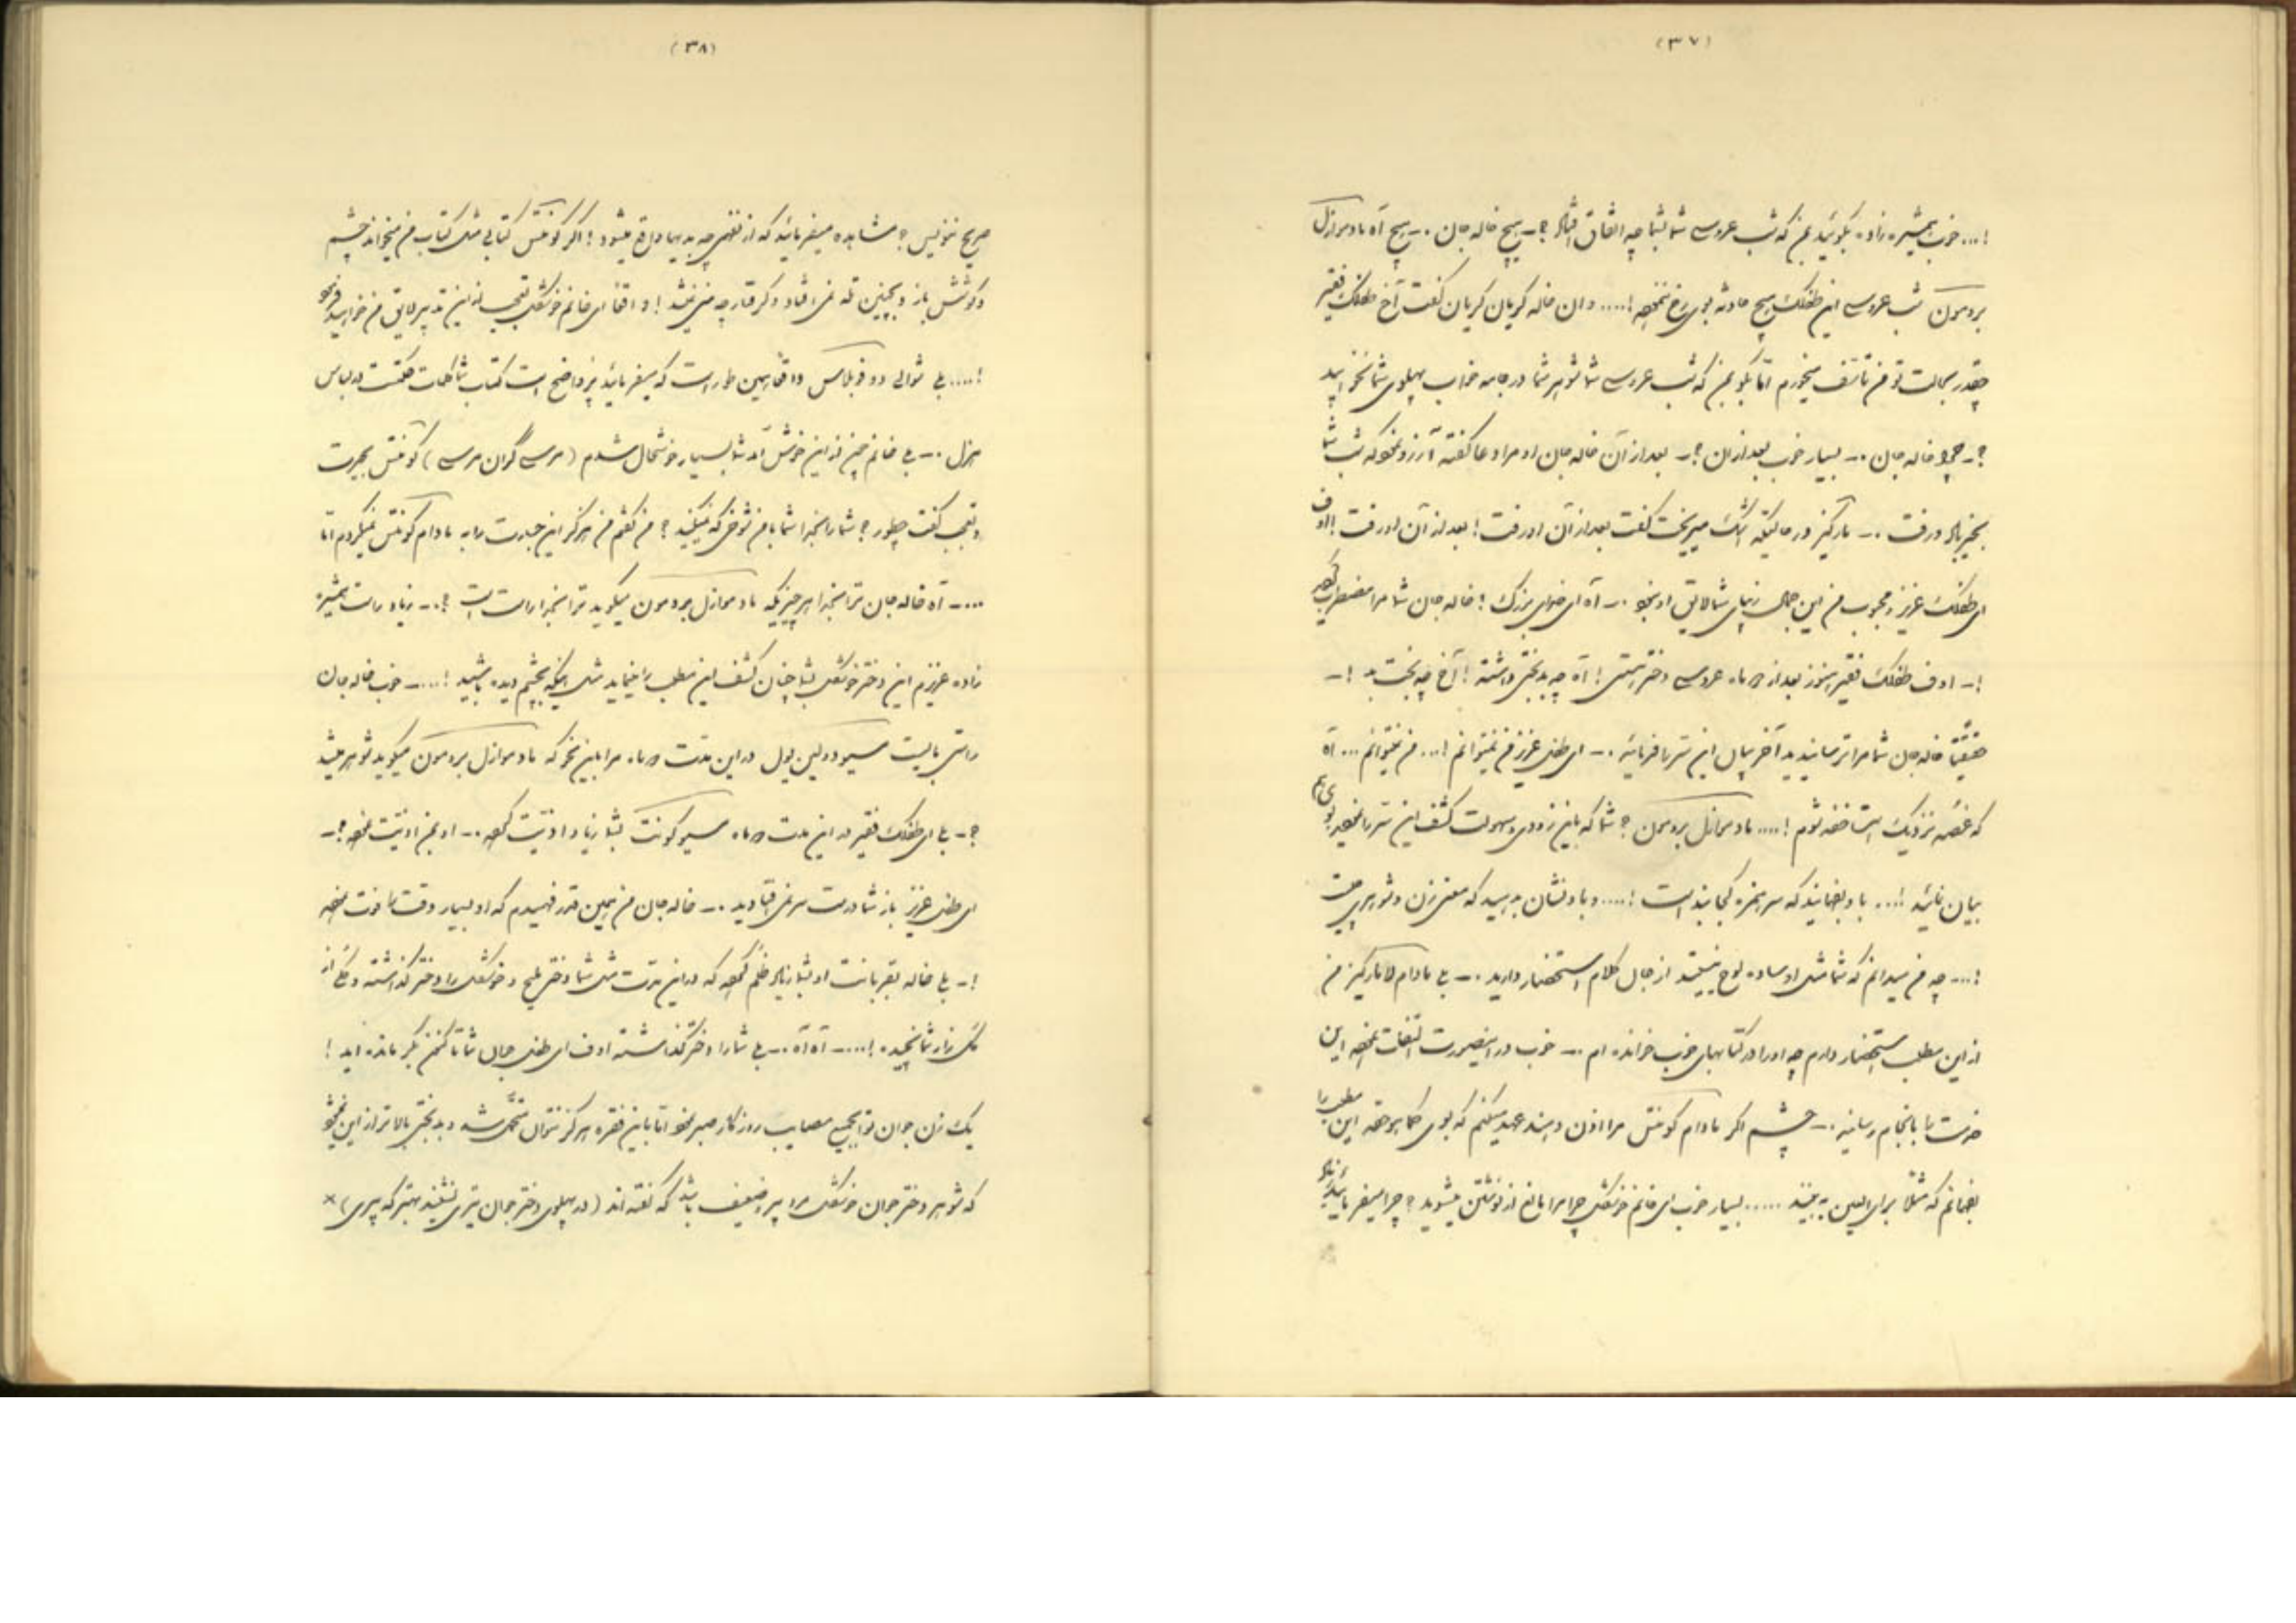 (۳۷)
!... خوب همشیره زاده بگوئید بمن که شب عروسی شما بشما چه اتفاق افتاد ؟ـ هیچ خاله جان .ـ هیچ آه مادموازل
بردمون شب عروسی این طفلک هیچ حادثه بوی رخ ننموده !.... و ان خاله گریان گریان گفت آخ طفلک فقیر
چقدر بحالت تو من تأسف میخورم امّا بگو بمن که شب عروسی شما شوهر شما در جامه خواب پهلوی شما نخوابید
؟ـ چرا خاله جان .ـ بسیار خوب بعد از ان ؟ـ بعد از آن خاله جان او مرا دعا گفته آرزو نمود که شب شما
بخیر باد و رفت .ـ مارکیز در حالیکه اشک میریخت گفت بعد از آن او رفت ! بعد از آن او رفت ! اوف
ای طفلک عزیز و محبوب من این جمال زیبای شما لایق او نبود .ـ آه ای خدای بزرگ ! خاله جان شما مرا مضطرب کردید
!ـ اوف طفلک فقیر هنوز بعد از ماه عروسی دختر هستی ! آه چه بدبختی داشته ! آخ چه بخت بد !ـ
حقیقتاً خاله جان شما مرا ترسانیدید آخر بیان این سرّ را فرمائید .ـ ای طفل عزیز من نمیتوانم !... من نمیتوانم ... آه
که غصّه نزدیک است خفه شوم !.... مادموازل بردمون ؟ شما که باین زودی و سهولت کشف این سرّ را نمودید بوی هم
بیان نمائید !... باو بفهمانید که سر خمره کجا بند است !.... و باو نشان بدهید که معنی زن و شوهر چیست
!... چه من میدانم که شما مثل او ساده لوح نیستید از حال کلام استحضار دارید .ـ بلی مادام لامارکیز من
از این مطلب استحضار دارم چه او را در کتابهای خوب خوانده ام .ـ خوب در اینصورت التفات نموده این
خدمت را بانجام رسانید .ـ چشم اگر مادام کونتس مرا اذن دهند عهد میکنم که بوی کما هو حقه این مطلب را
بفهمانم که مثلاً برای العین به بیند ..... بسیار خوب ای خانم خوشگل چرا مرا مانع از نوشتن میشوید ؟ چرا میفرمائید
(۳۸)
صریح ننویس ؟ مشاهده میفرمائید که از نفهمی چه بدیها واقع میشود ! اگر کونتس کتابی مثل کتاب من میخواند چشم
و گوشش باز و بچنین تله نمی افتاد و گرفتار چه نمیشد ! واقعاً ای خانم خوشگل تعجب از این تدبیر لایق من خواهید فرمود
!.... بلی شوالی دو فبلاس واقعاً همین طور است که میفرمائید پر واضح است کتاب شما کلمات حکمت در لباس
هزل .ـ بلی خانم چون از این خوش آمد شما بسیار خوشحال شدم (مرسی گران مرسی) کونتس بحیرت
و تعجب گفت چطور ؟ شما را بخدا شما با من شوخی که نمیکنید ؟ من گفتم من هرگز این جسارت را به مادام کونتس نمیکردم امّا
...ـ آه خاله جان ترا بخدا هر چیزیکه مادموازل بردمون میگوید ترا بخدا راست است ؟.ـ زیاد راست همشیره
زاده عزیزم این دختر خوشگل بشما چنان کشف این مطلب را نماید مثل اینکه بچشم دیده باشید !....ـ خوب خاله جان
راستی بایست مسیو دولین یول در این مدت ماه مرا باین نحو که مادموازل بردمون میگوید شوهر میشد
؟ـ بلی ای طفلک فقیر در این مدت ماه مسیو کونت بشما زیاد اذیّت کرده .ـ او بمن اذیّت نموده ؟ـ
ای طفل عزیز باز شما درست سر نمی افتادید .ـ خاله جان من همین قدر فهمیدم که او بسیار وقت را فوت نموده
!ـ بلی خاله بقربانت او بشما زیاد ظلم کرده که در این مدت مثل شما دختر ملیح و خوشگل را دختر گذاشته و گلی از
گلزار شما نچیده !....ـ آه آه .ـ بلی شما را دختر گذاشته اوف ای طفل جمال شما تا کنون بکر مانده اید !
یک زن جوان تواند بجمیع مصایب روزگار صبر نمود امّا باین فقره هرگز نتوان متحمّل شد و بدبختی بالاتر از این نمیشود
که شوهر دختر جوان خوشگل مرد پیر ضعیف باشد که گفته اند (در پهلوی دختر جوان تیری نشیند بهتر که پیری) ×